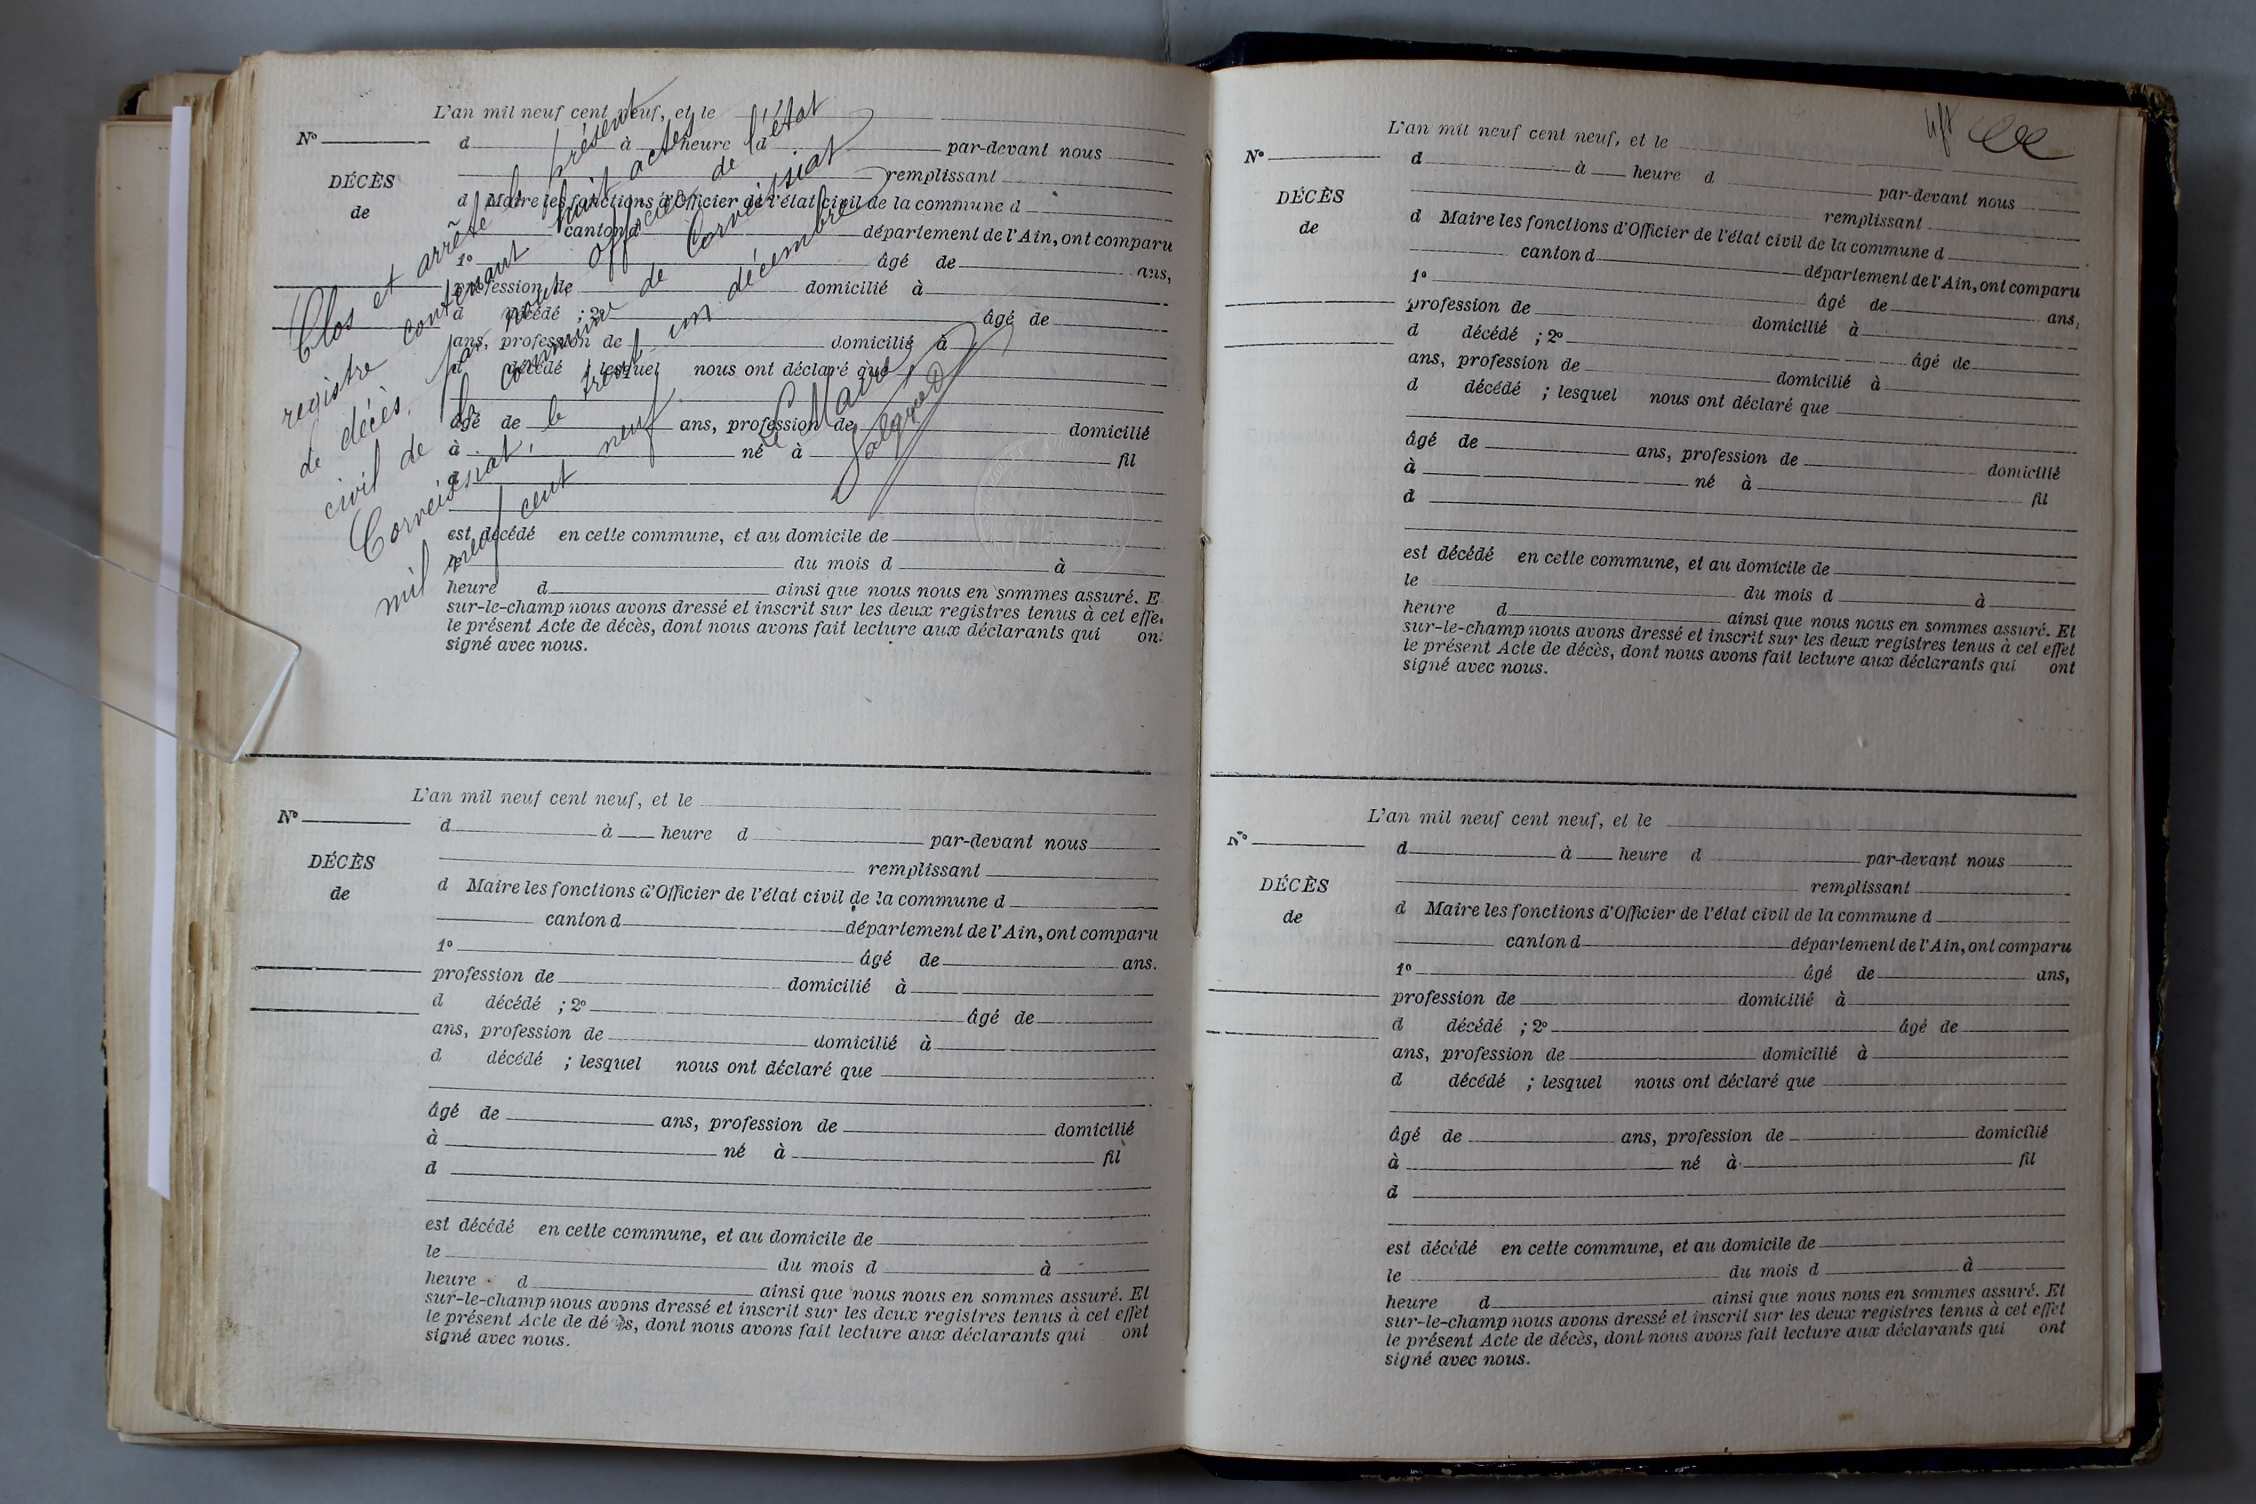 L'an mil neuf cent neuf, et le
N° d à heure d par-devant nous
DÉCÈS remplissant
de d Maire les fonctions d'Officier de l'état civil de la commune d
canton d département de l'Ain, ont comparu
1° âgé de ans,
profession de domicilié à
d décédé ; 2° âgé de
ans, profession de domicilié à
d décédé ; lesquel nous ont déclaré que
âgé de ans, profession de domicilié
à né à fil
d
est décédé en cette commune, et au domicile de
le du mois d à
heure d ainsi que nous nous en sommes assuré. E
sur-le-champ nous avons dressé et inscrit sur les deux registres tenus à cet effe
le présent Acte de décès, dont nous avons fait lecture aux déclarants qui on
signé avec nous.
Clos et arrêté le présent
registre contenant huit actes
de décès, par nous, officier de l'état
civil de la commune de Corveissiat
Corveissiat, le trent un décembre
mil neuf cent neuf
Le Maire
L'an mil neuf cent neuf, et le
N° d à heure d par-devant nous
DÉCÈS remplissant
de d Maire les fonctions d'Officier de l'état civil de la commune d
canton d département de l'Ain, ont comparu
1° âgé de ans.
profession de domicilié à
d décédé ; 2° âgé de
ans, profession de domicilié à
d décédé ; lesquel nous ont déclaré que
âgé de ans, profession de domicilié
à né à fil
d
est décédé en cette commune, et au domicile de
le du mois d à
heure d ainsi que nous nous en sommes assuré. Et
sur-le-champ nous avons dressé et inscrit sur les deux registres tenus à cet effet
le présent Acte de décès, dont nous avons fait lecture aux déclarants qui ont
signé avec nous.
L'an mil neuf cent neuf, et le
N° d à heure d par-devant nous
DÉCÈS remplissant
de d Maire les fonctions d'Officier de l'état civil de la commune d
canton d département de l'Ain, ont comparu
1° âgé de ans,
profession de domicilié à
d décédé ; 2° âgé de
ans, profession de domicilié à
d décédé ; lesquel nous ont déclaré que
âgé de ans, profession de domicilié
à né à fil
d
est décédé en cette commune, et au domicile de
le du mois d à
heure d ainsi que nous nous en sommes assuré. Et
sur-le-champ nous avons dressé et inscrit sur les deux registres tenus à cet effet
le présent Acte de décès, dont nous avons fait lecture aux déclarants qui ont
signé avec nous.
L'an mil neuf cent neuf, et le
N° d à heure d par-devant nous
DÉCÈS remplissant
de d Maire les fonctions d'Officier de l'état civil de la commune d
canton d département de l'Ain, ont comparu
1° âgé de ans,
profession de domicilié à
d décédé ; 2° âgé de
ans, profession de domicilié à
d décédé ; lesquel nous ont déclaré que
âgé de ans, profession de domicilié
à né à fil
d
est décédé en cette commune, et au domicile de
le du mois d à
heure d ainsi que nous nous en sommes assuré. Et
sur-le-champ nous avons dressé et inscrit sur les deux registres tenus à cet effet
le présent Acte de décès, dont nous avons fait lecture aux déclarants qui ont
signé avec nous.